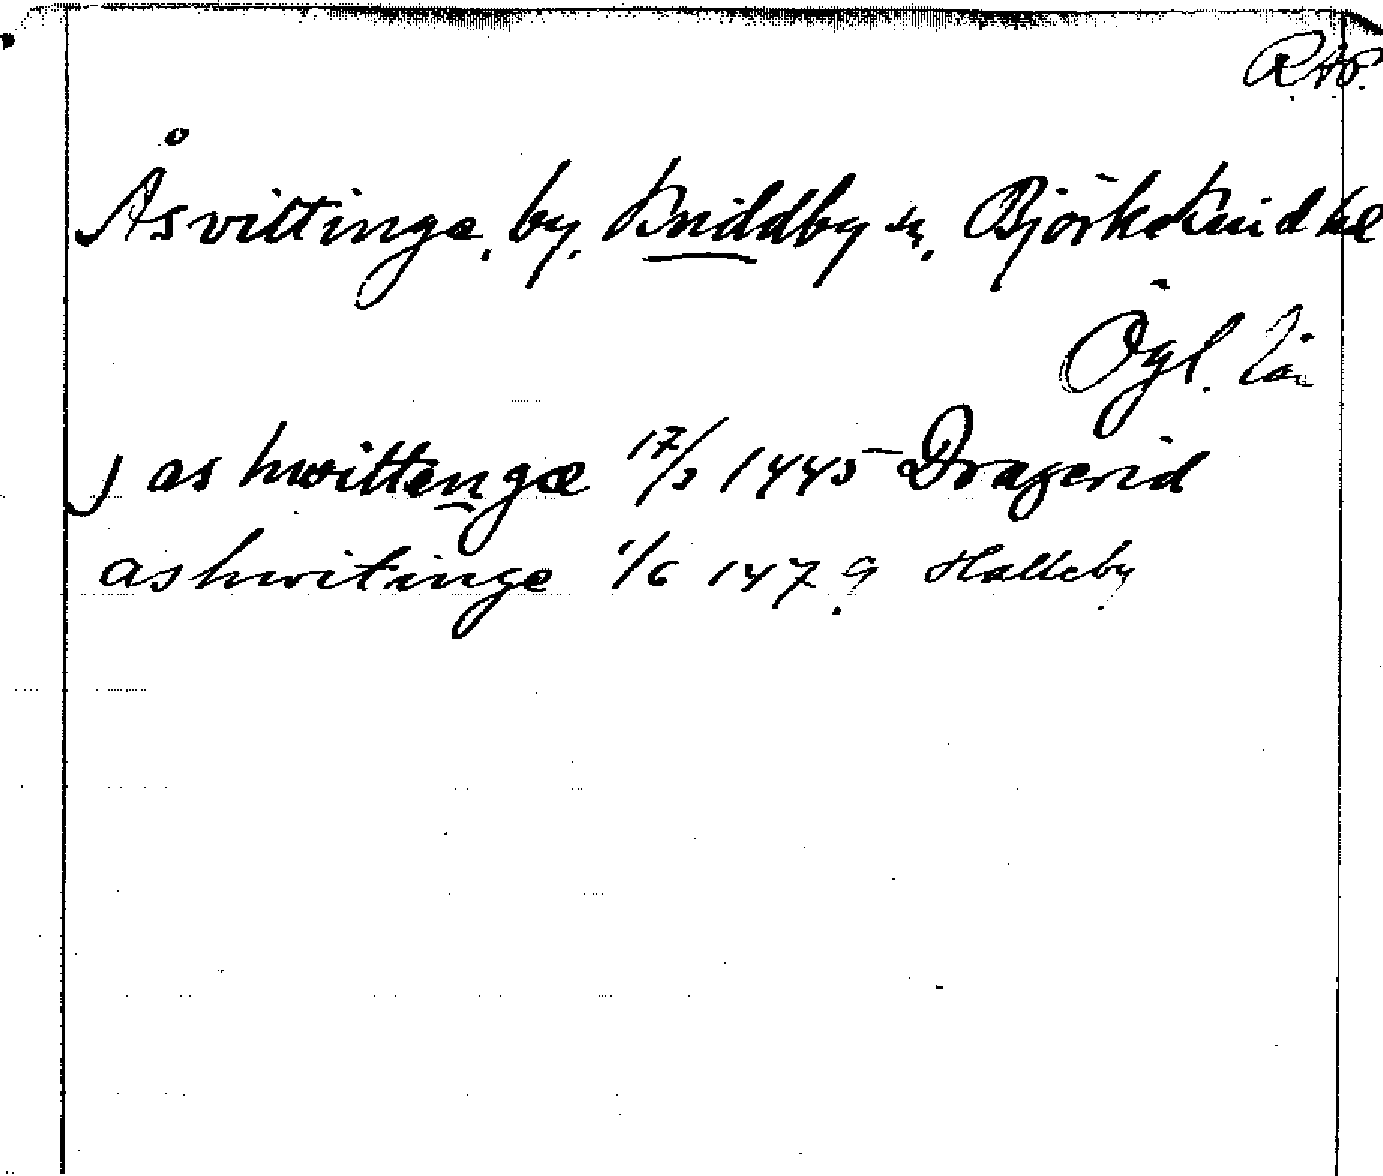 RAP.
Åsvittinge, by, Kuddby sn, Björkekinds hd
Ögl. län
j as hwittengæ 17/3 1445 Dragerid
ashwitinge 1/6 1479 Halleby